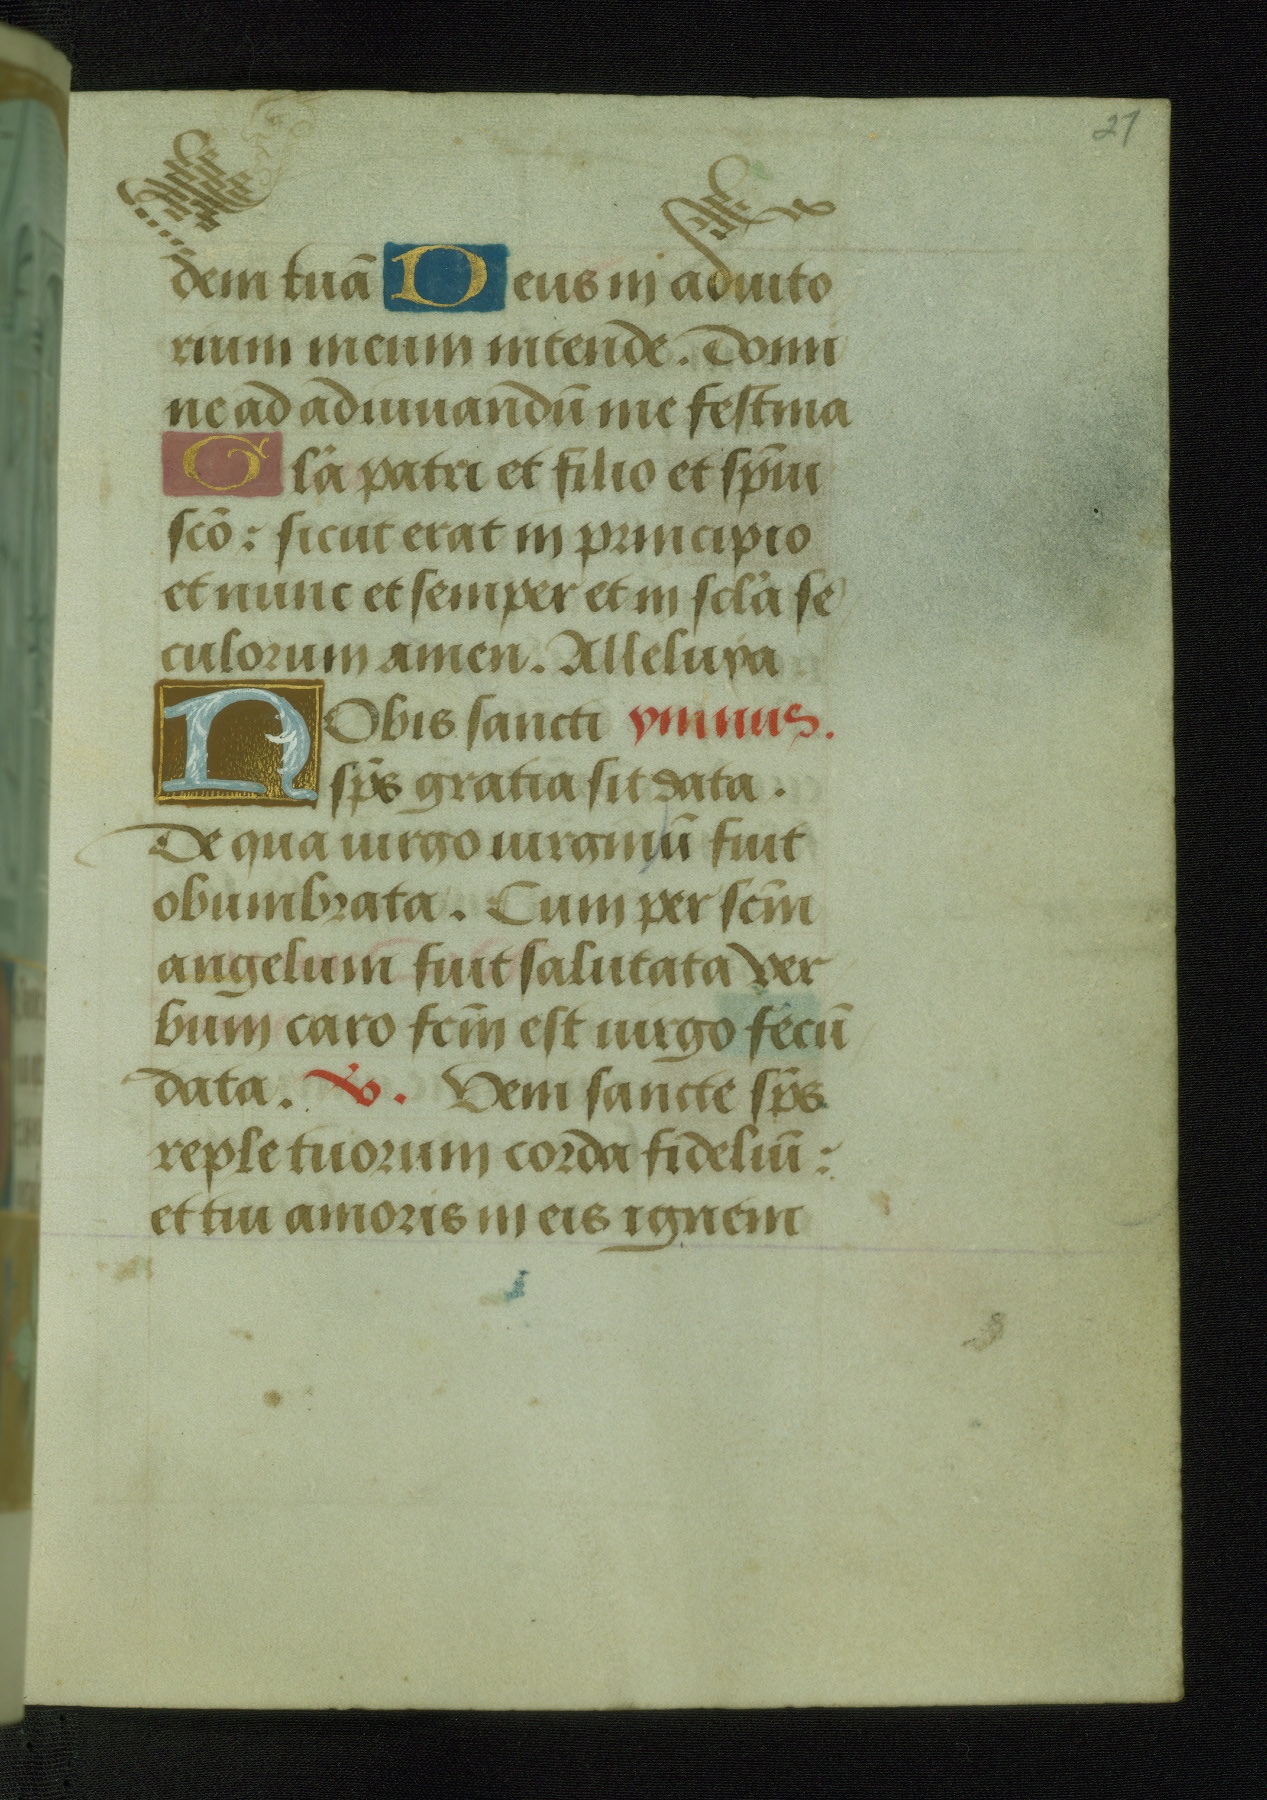 27
dem tuā Deus in adiuto
rium meum intende. Domi
ne ad adiuuandū me festina
Glā patri et filio et spūi
scō: sicut erat in principio
et nunc et semper et in scl'a se
culorum amen. Alleluya
NObis sancti ymnus.
sps̄ gratia sit data.
De qua uirgo uirginū fuit
obumbrata. Cum per scm̄
angelum fuit salutata ver
bum caro fcm̄ est uirgo fecū
data. V. Veni sancte sps̄
reple tuorum corda fideliū:
et tui amoris in eis ignem